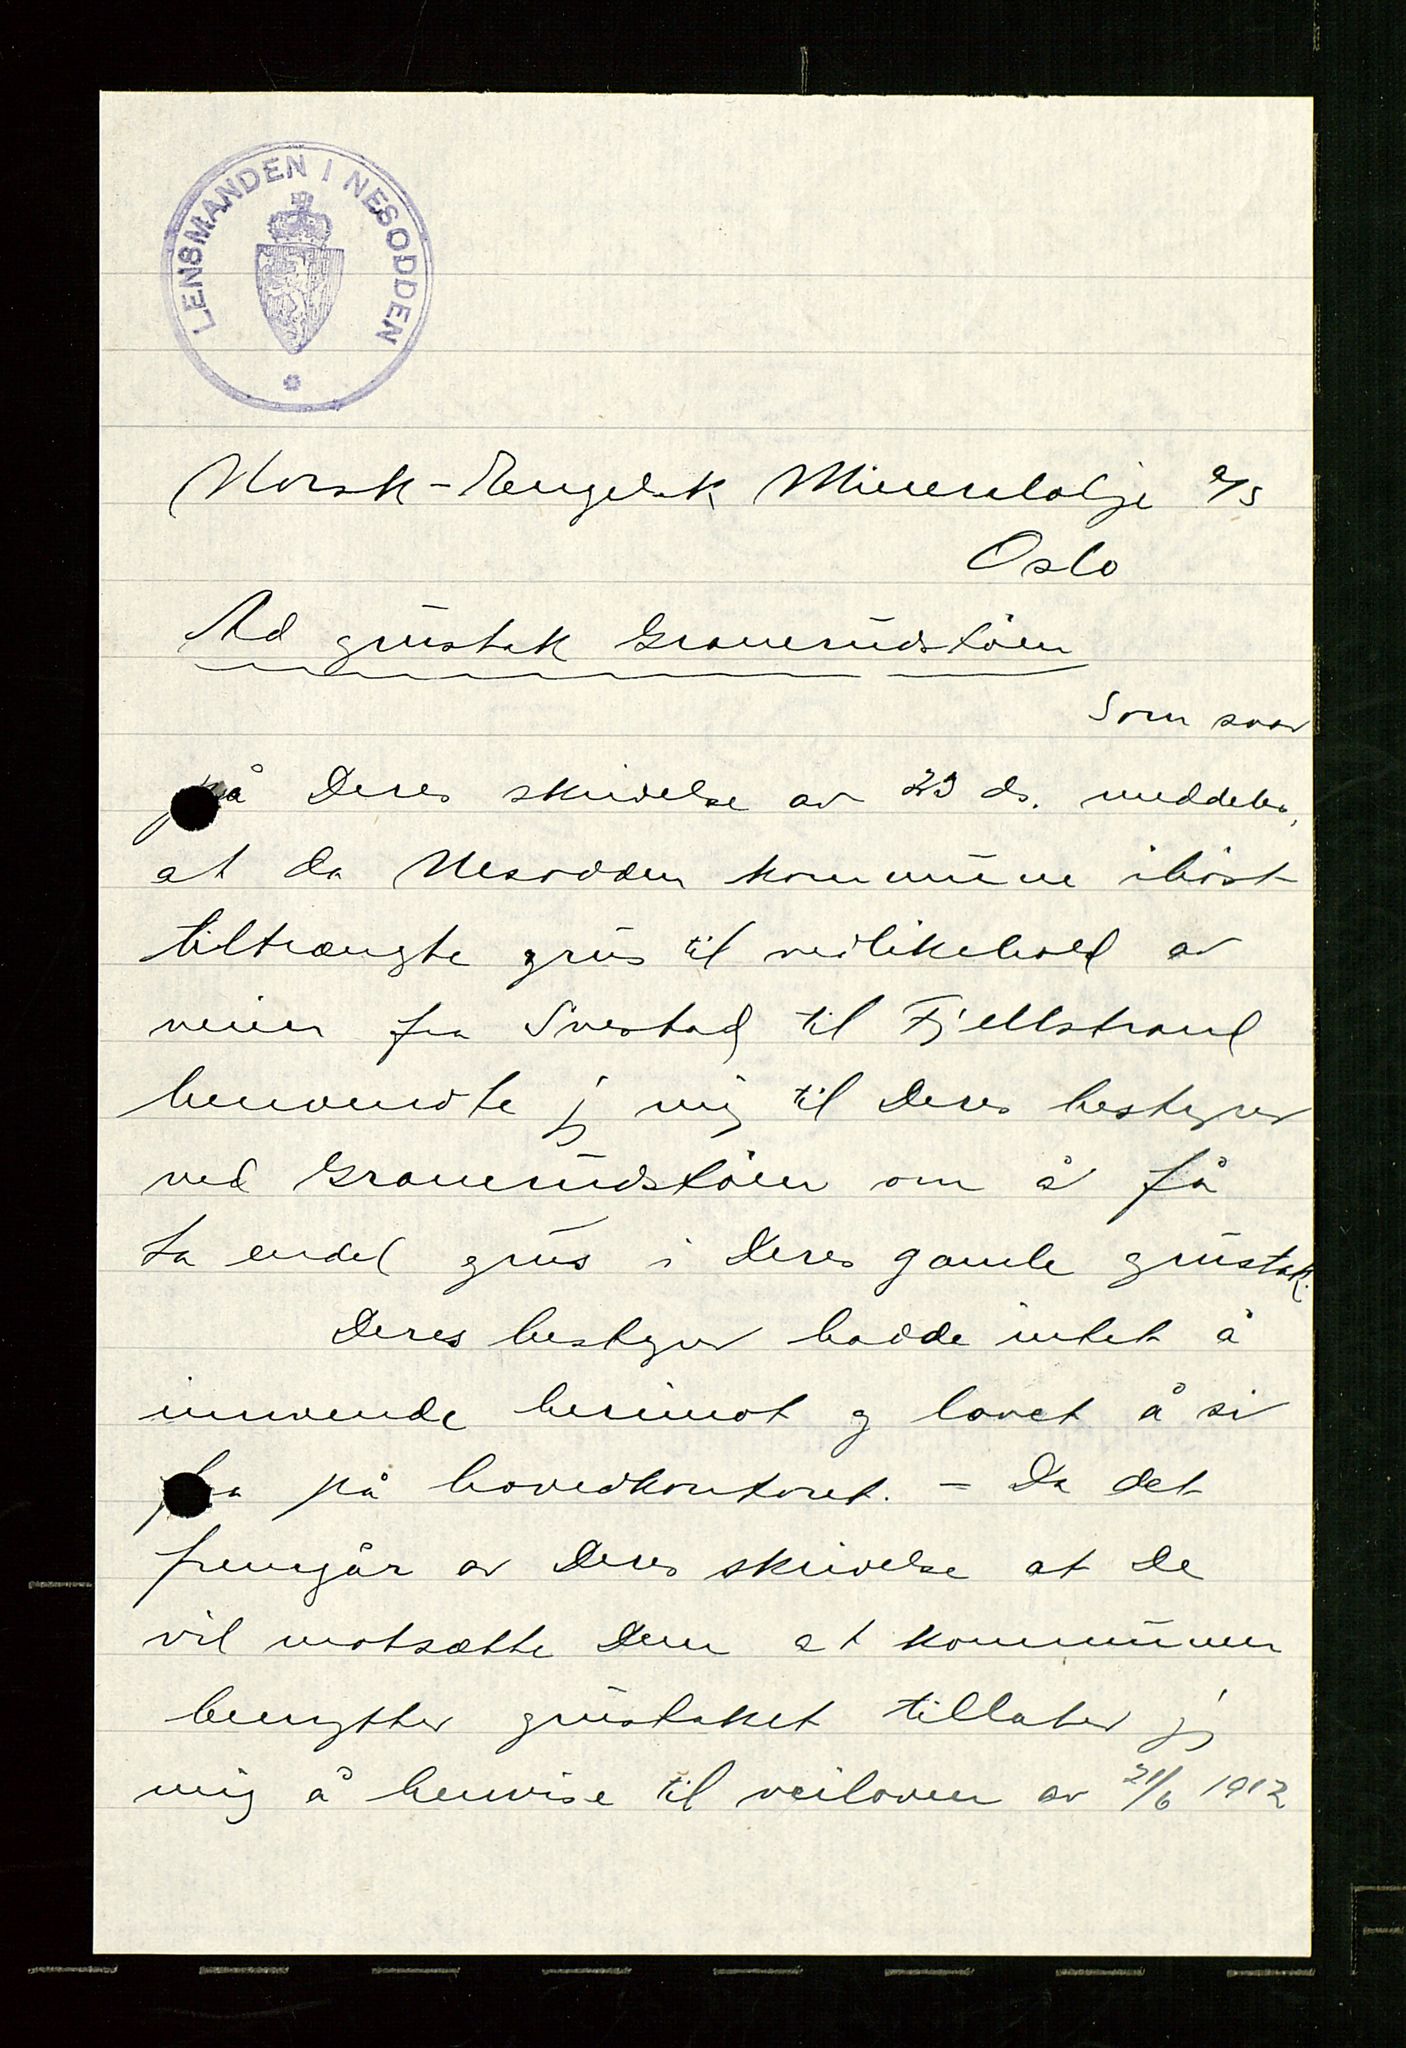 LENSMANDEN I NESODDEN
Norsk-Engelsk Mineralolje A/S
Oslo
Ad grustak Granerudstøen
Som svar
på Deres skrivelse av 23 ds. meddeles,
at da Nesodden kommune ihøst
tiltrængte grus til vedlikehold av
veien fra Svestad til Fjellstrand
henvendte jeg mig til Deres bestyrer
ved Granerudstøen om å få
ta endel grus i Deres gamle grustak.
Deres bestyrer hadde intet å
innvende herimot og lovet å si
fra på hovedkontoret. - Da det
fremgår av Deres skrivelse at De
vil motsætte Dem at kommunen
benytter grustaket tillater jeg
mig å henvise til veiloven av 21/6 1912